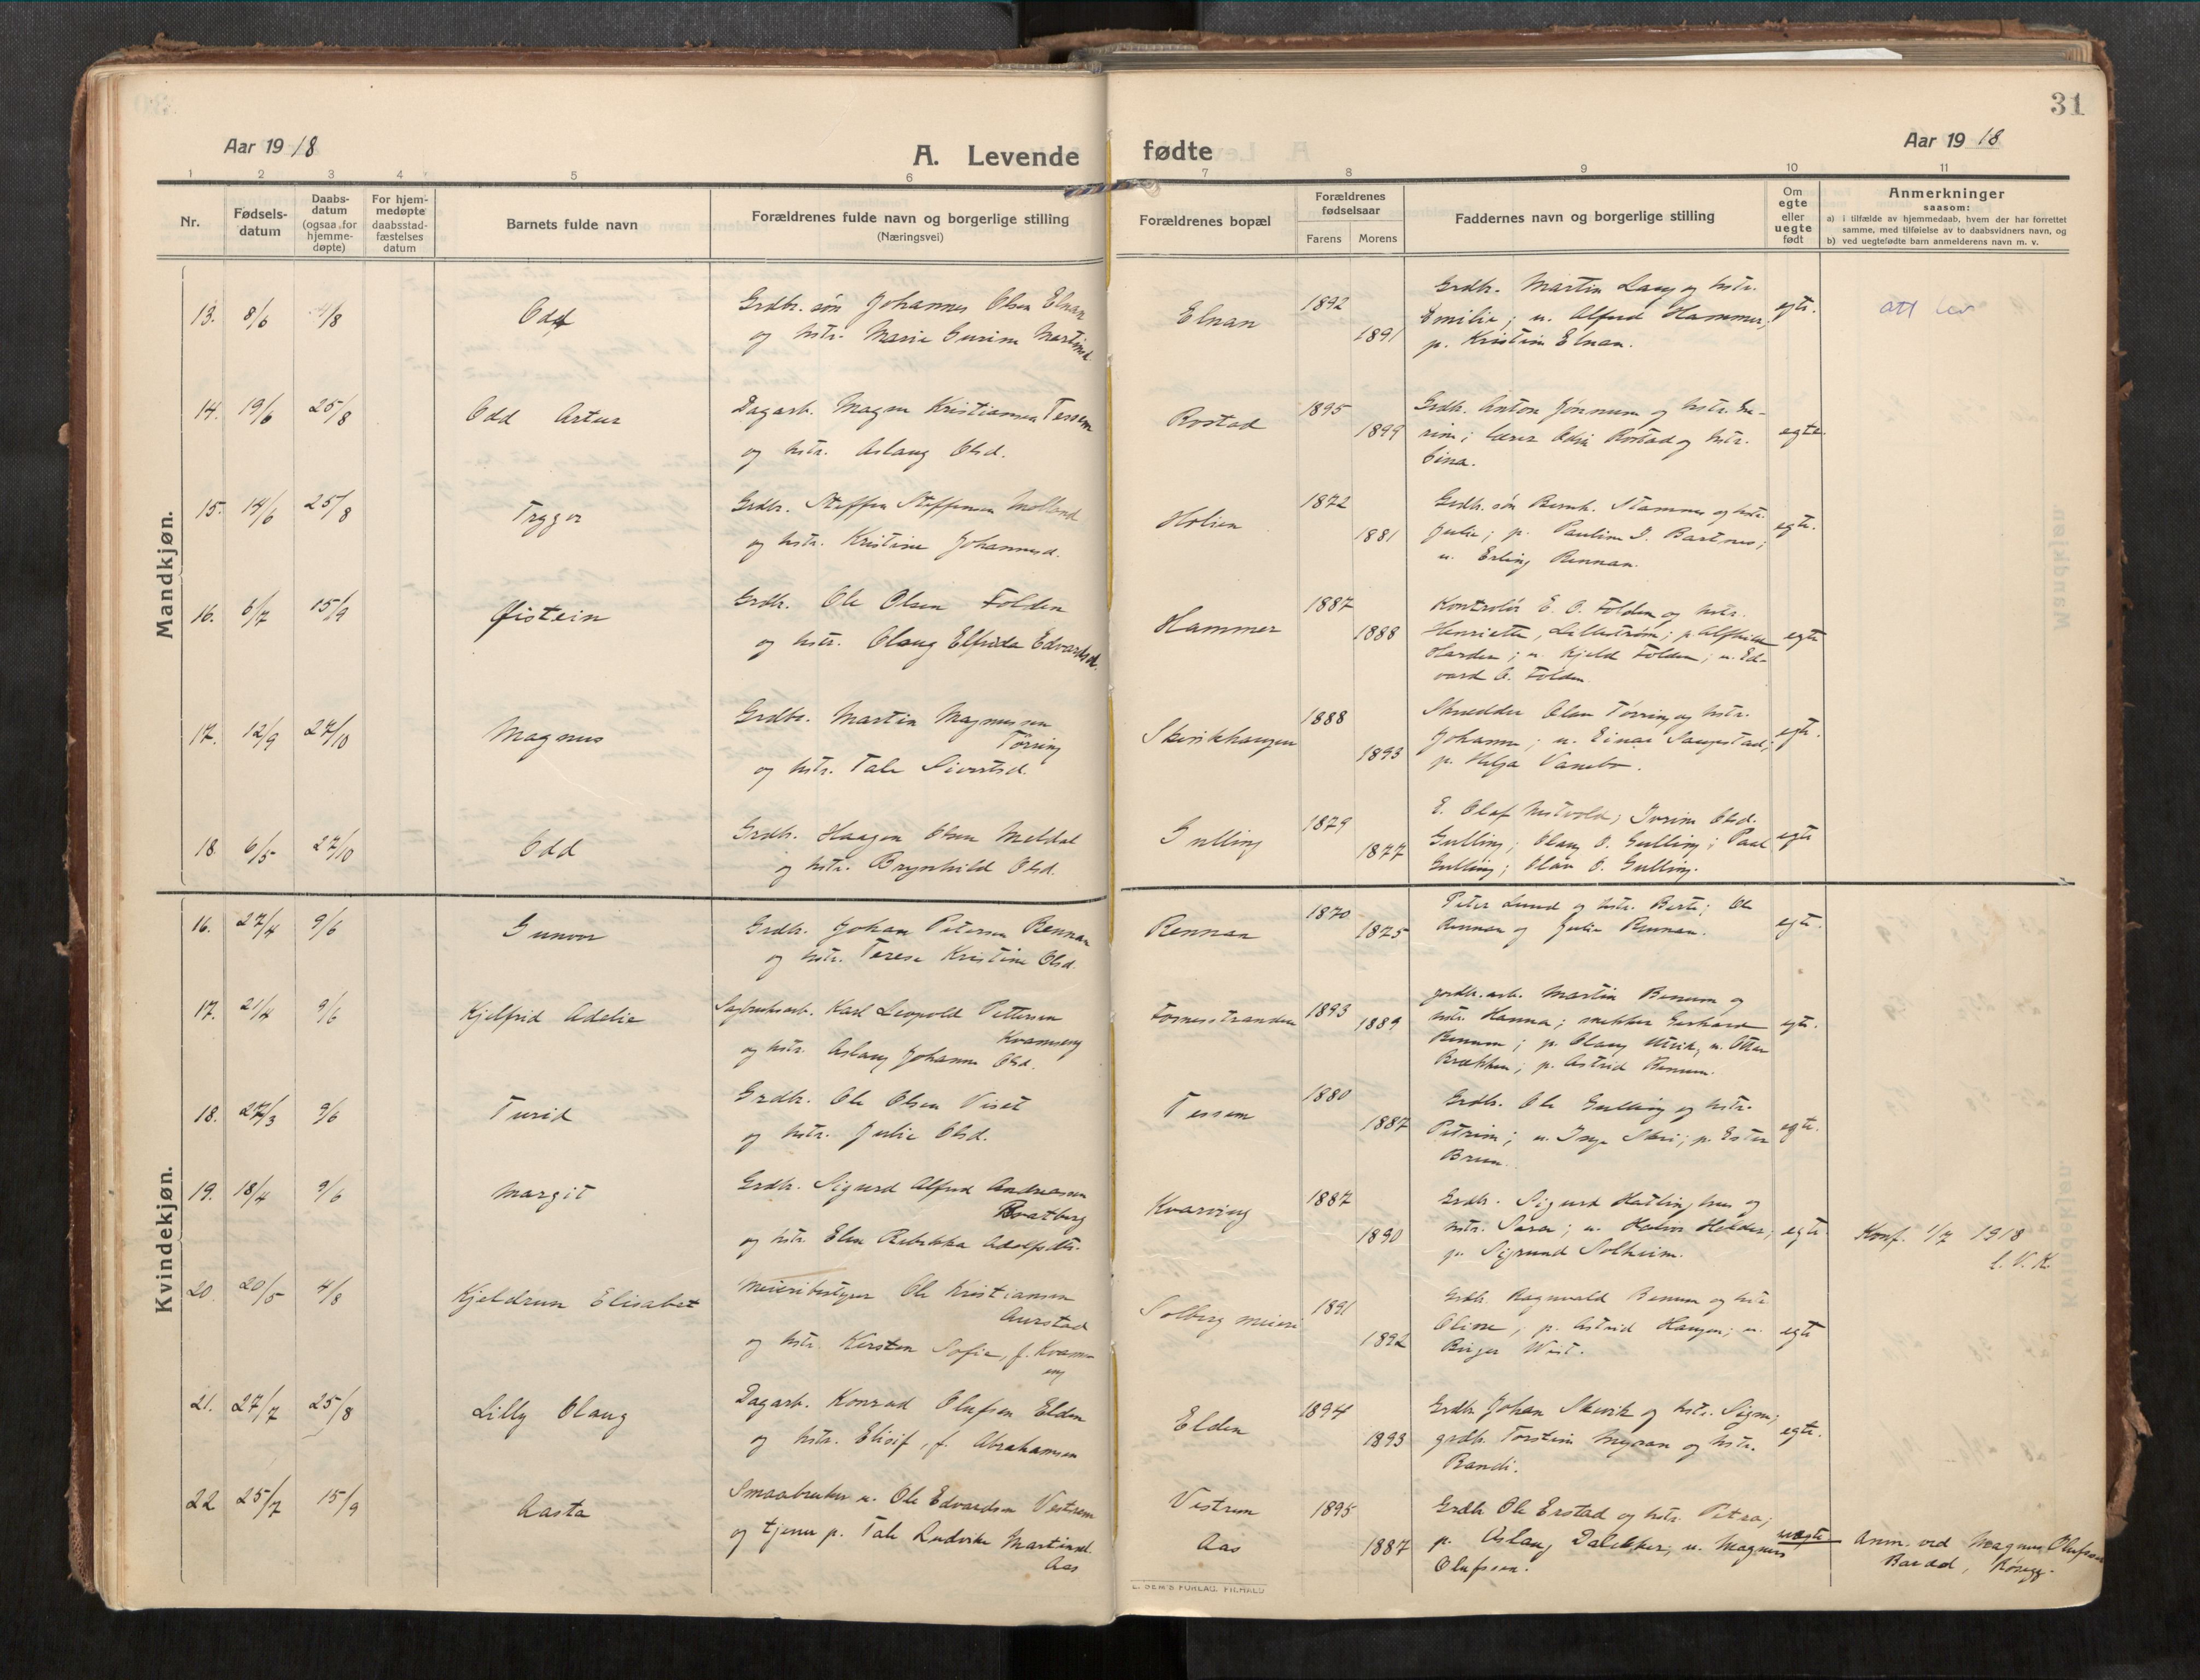 31
Aar 1918
A. Levende fødte
Aar 1918
1 2 3 4 5 6 7 8 9 10 11
Nr.
Fødsels-
datum
Daabs-
datum
(ogsaa for
hjemme-
døpte)
For hjem-
medøpte
daabsstad-
fæstelses
datum
Barnets fulde navn
Forældrenes fulde navn og borgerlige stilling
(Næringsvei)
Forældrenes bopæl
Forældrenes
fødselsaar
Farens Morens
Faddernes navn og borgerlige stilling
Om
egte
eller
uegte
født
Anmerkninger
saasom:
a) i tilfælde av hjemmedaab, hvem der har forrettet
samme, med tilføielse av to daabsvidners navn, og
b) ved uegtefødte barn anmelderens navn m. v.
Mandkjøn.
13. 8/6 4/8 Odd
Grdbr. søn Johannes Olsen Elnan
og hstr. Marie Gurine Martinsd.
Elnan 1892 1891
Grdb. Martin Lang og hstr.
Emilie; u. Alfred Hammer,
p. Kristine Elnan.
egte. att lev
14. 19/6 25/8 Odd Artur
Dagarb. Magne Kristiansen Tessem
og hstr. Aslaug Olsd.
Rostad 1895 1899
Grdb. Anton Jønnum og hstr. Gu-
rine; lærer Odin Rostad og hstr.
egte.
15. 14/6 25/8 Trygve
Grdbr. Steffen Steffensen Molland
og hstr. Kristine Johannesd.
Holien 1872 1881
Grdb. søn Bernh. Stamnes og hstr.
Julie; p. Pauline J. Bartnes;
u. Erling Rennan.
egte.
16. 6/7 15/9 Øistein
Grdb. Ole Olsen Folden
og hstr. Olaug Elfrida Edvardsd.
Hammer 1887 1888
Kontrolør E. O. Folden og hstr.
Henriette, Lillestrøm; p. Alfhild
Harden; u. Kjeld Folden; u. Ed-
vard O. Folden
egte
17. 12/9 27/10 Magnus
Grdbr. Martin Magnussen
Tørring
og hstr. Tale Sivertsd.
Skevikhaugen 1888 1893
Skredder Olav Tørring og hstr.
Johanne; u. Einar Saugestad;
p. Helga Vanebo.
egte.
18. 6/5 27/10 Odd
Grdb. Haagen Olsen Meldal
og hstr. Brynhild Olsd.
Gulling 1879 1877
E. Olaf Nestvold; Jorine Olsd.
Gulling; Olaug O. Gulling; Paul
Gulling; Olav O. Gulling.
egte
Kvindekjøn.
16. 27/4 9/6 Gunvor
Grdb. Johan Petersen Rennan
og hstr. Terese Kristine Olsd.
Rennan 1870 1875
Peter Lund og hstr. Berte; Ole
Rennan og Julie Rennan.
egte.
17. 21/4 9/6 Kjelfrid Adelie
Sagbruksarb. Karl Leopold Pettersen
Kvameng
og hstr. Aslaug Johanne Olsd.
Fornesstranden 1893 1889
gardb.arb. Martin Benum og
hstr. Hanna; snekker Gerhard
Benum; p. Olaug Utvik; u. Ottar
Brækken; p. Astrid Benum.
egte.
18. 27/3 9/6 Turid
Grdb. Ole Olsen Viset
og hstr. Julie Olsd.
Tessem 1880 1887
Grdb. Ole Gulling og hstr.
Petrine; u. Inge Skei; p. Ester
Brun.
egte.
19. 18/4 9/6 Margit
Grdb. Sigurd Alfred Andreassen
Bratberg
og hstr. Elen Rebekka Adolfsdtr.
Kvarving 1887 1890
Grdb. Sigurd Hatlinghus og
hstr. Sara; u. Halvor Heldes;
p. Sigrund Solheim.
egte.
Konf. 1/7 1918
L. V. K.
20. 20/5 4/8 Kjeldrun Elisabet
Meieribestyrer Ole Kristiansen
Aurstad
og hstr. Kersten Sofie, f. Kvam-
eng
Solberg meieri 1891 1892
Grdb. Ragnvald Benum og hstr.
Oline; p. Astrid Haugen; u.
Birger West.
egte
21. 27/7 25/8 Lilly Olaug
Dagarb. Konrad Olufsen Elden
og hstr. Elisif, f. Abrahamsen
Elden 1894 1893
Grdb. Johan Skevik og hstr. Signe;
grdb. Torstein Myran og hstr.
Randi.
egte.
22 25/7 15/9 Aasta
Smaabruker u. Ole Edvardsen Vestrum
og tjener p. Tale Ludvike Martinsd.
Aas
Vestrum 1895
Aas 1887
Grdb. Ole Erstad og hstr. Petra;
p. Aslaug Dalbakken; u. Magnus
Olufssen.
uegte
Anm. ved Magnus Olufsen
L. SEM'S FORLAG, F.HALD